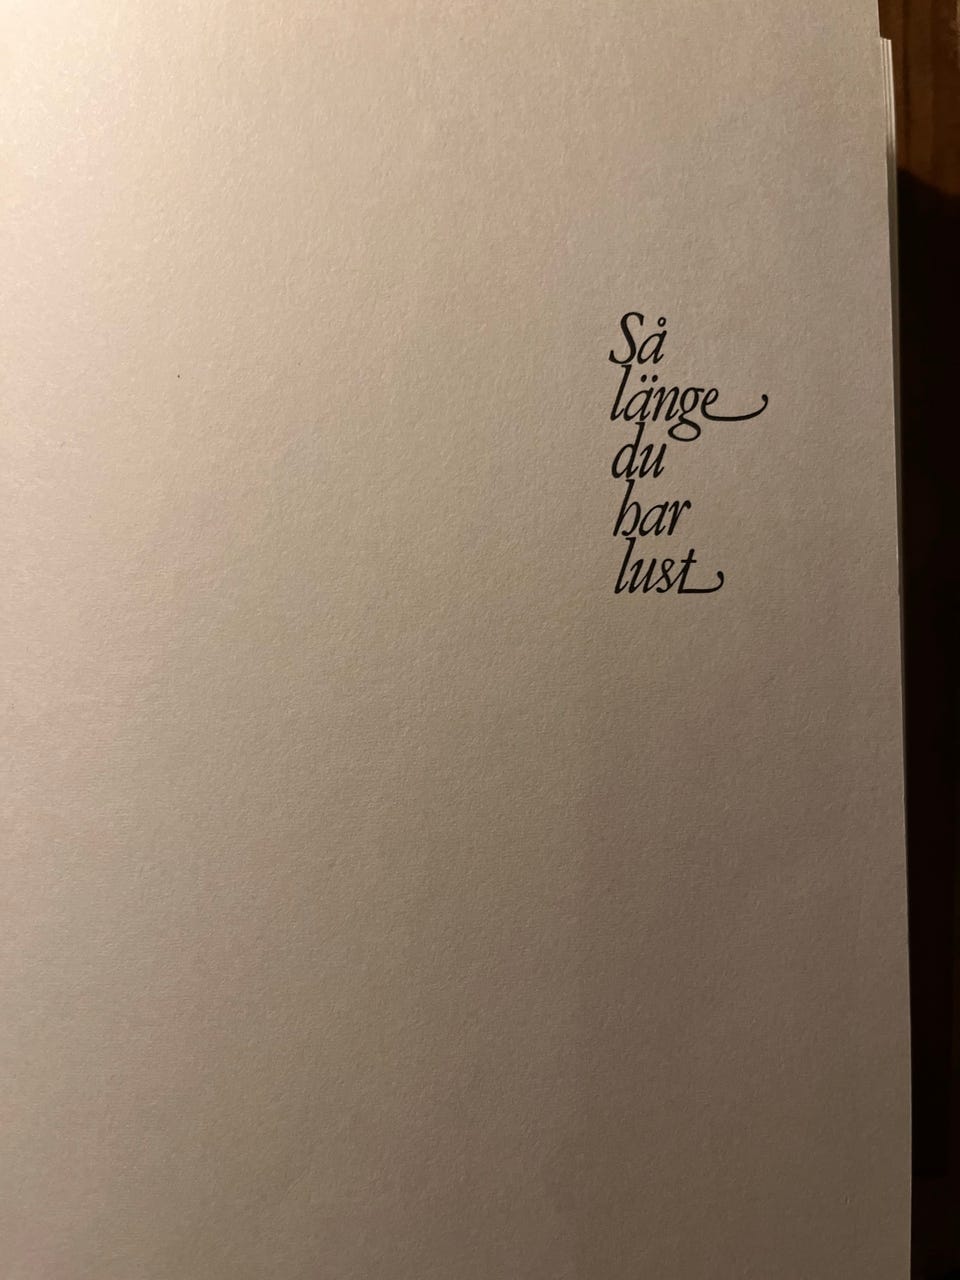 Så
länge
du
har
lust